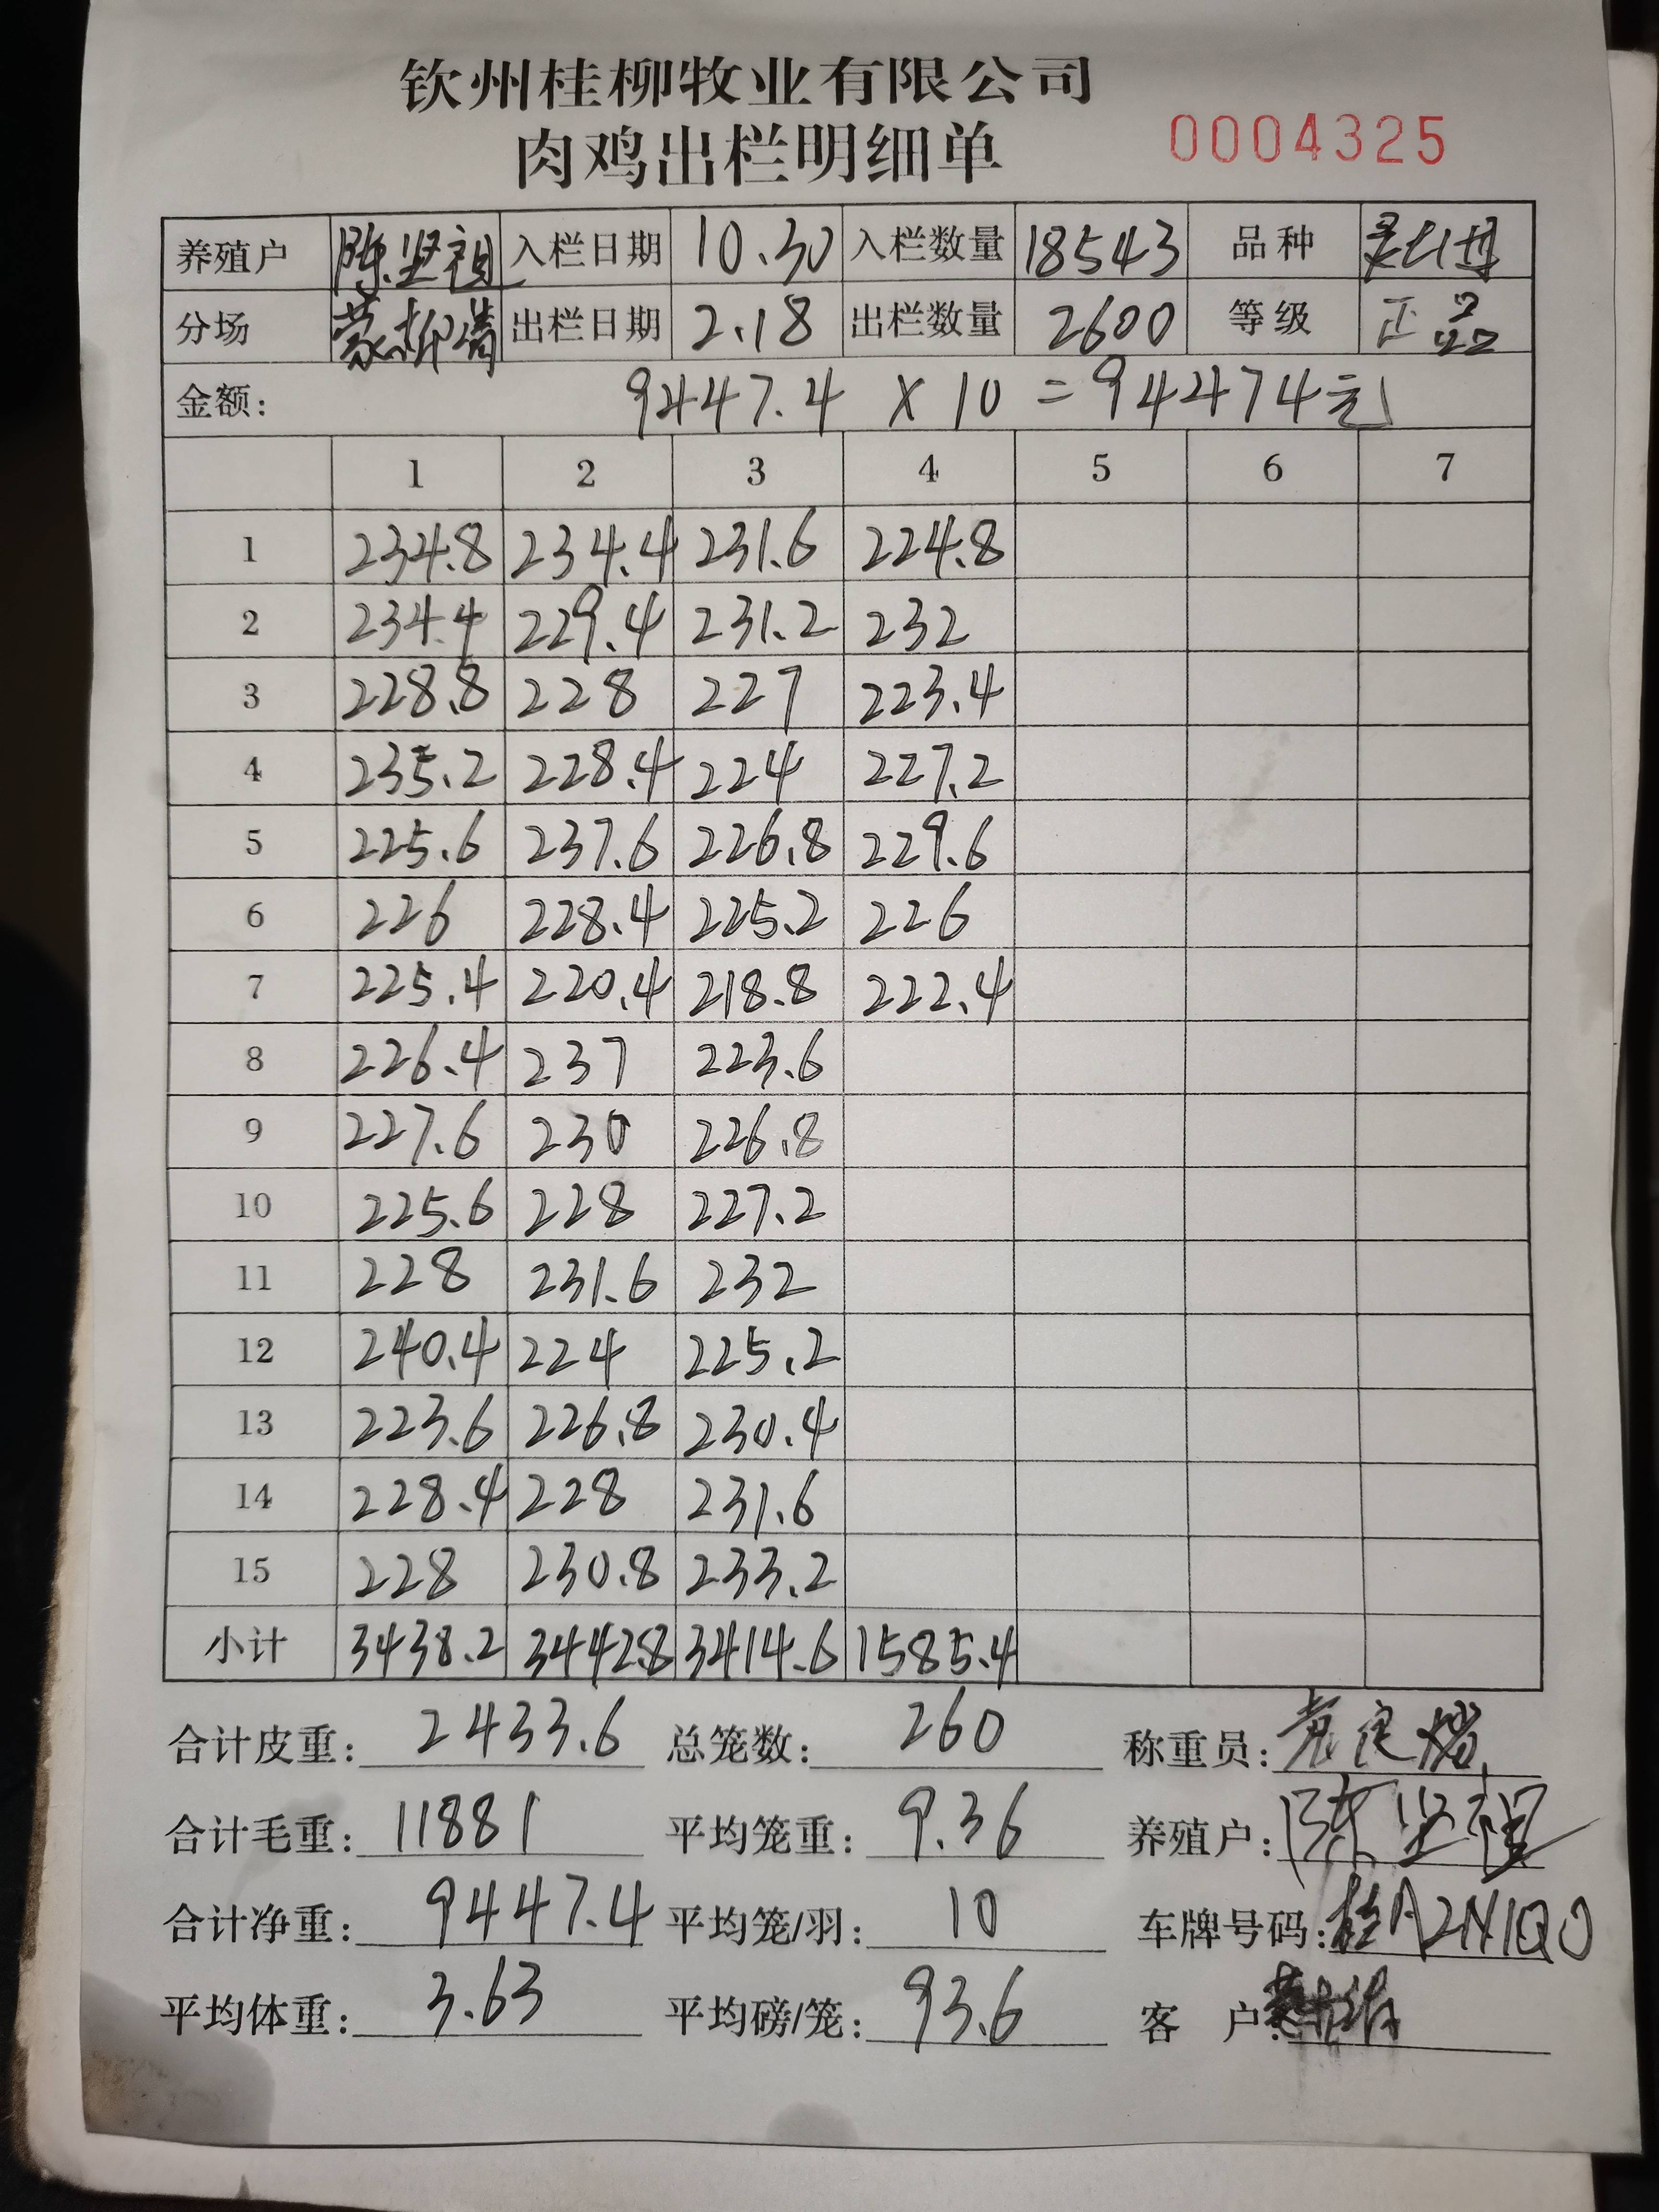 钦州桂柳牧业有限公司
肉鸡出栏明细单 0004325
养殖户 陈坚祖 入栏日期 10.30 入栏数量 18543 品种
分场 蒙柳清 出栏日期 2.18 出栏数量 2600 等级 正品
金额: 9447.4 × 10 = 94474元
1 2 3 4 5 6 7
1 234.8 234.4 231.6 224.8
2 234.4 229.4 231.2 232
3 228.8 228 227 223.4
4 235.2 228.4 224 227.2
5 225.6 237.6 226.8 229.6
6 226 228.4 225.2 226
7 225.4 220.4 218.8 222.4
8 226.4 237 223.6
9 227.6 230 226.8
10 225.6 228 227.2
11 228 231.6 232
12 240.4 224 225.2
13 223.6 226.8 230.4
14 228.4 228 231.6
15 228 230.8 233.2
小计 3438.2 3442.8 3414.6 1585.4
合计皮重: 2433.6 总笼数: 260 称重员:
合计毛重: 11881 平均笼重: 9.36 养殖户: 陈坚祖
合计净重: 9447.4 平均笼/羽: 10 车牌号码: 桂A2N1Q0
平均体重: 3.63 平均磅/笼: 93.6 客 户: